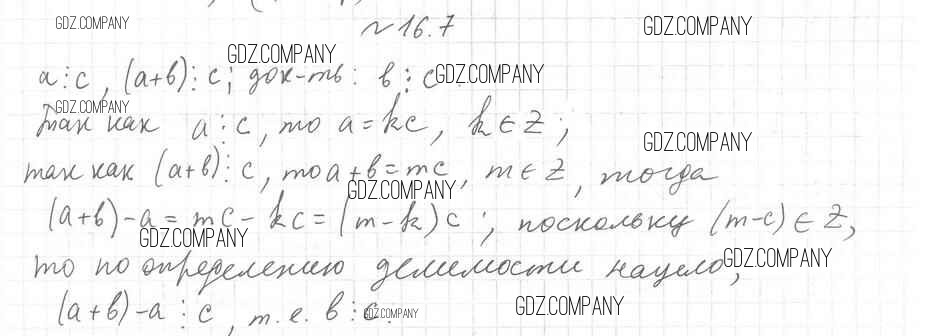 GDZ.COMPANY
№ 16.7
GDZ.COMPANY
GDZ.COMPANY
a ⋮ c, (a+b) ⋮ c; док-ть: b ⋮ c.
GDZ.COMPANY
GDZ.COMPANY
Так как a ⋮ c, то a = kc, k ∈ Z;
GDZ.COMPANY
так как (a+b) ⋮ c, то a+b = mc, m ∈ Z, тогда
GDZ.COMPANY
(a+b)-a = mc - kc = (m-k)c; поскольку (m-c) ∈ Z,
GDZ.COMPANY
то по определению делимости нацело,
GDZ.COMPANY
(a+b)-a ⋮ c, т.е. b ⋮ c.
GDZ.COMPANY
GDZ.COMPANY